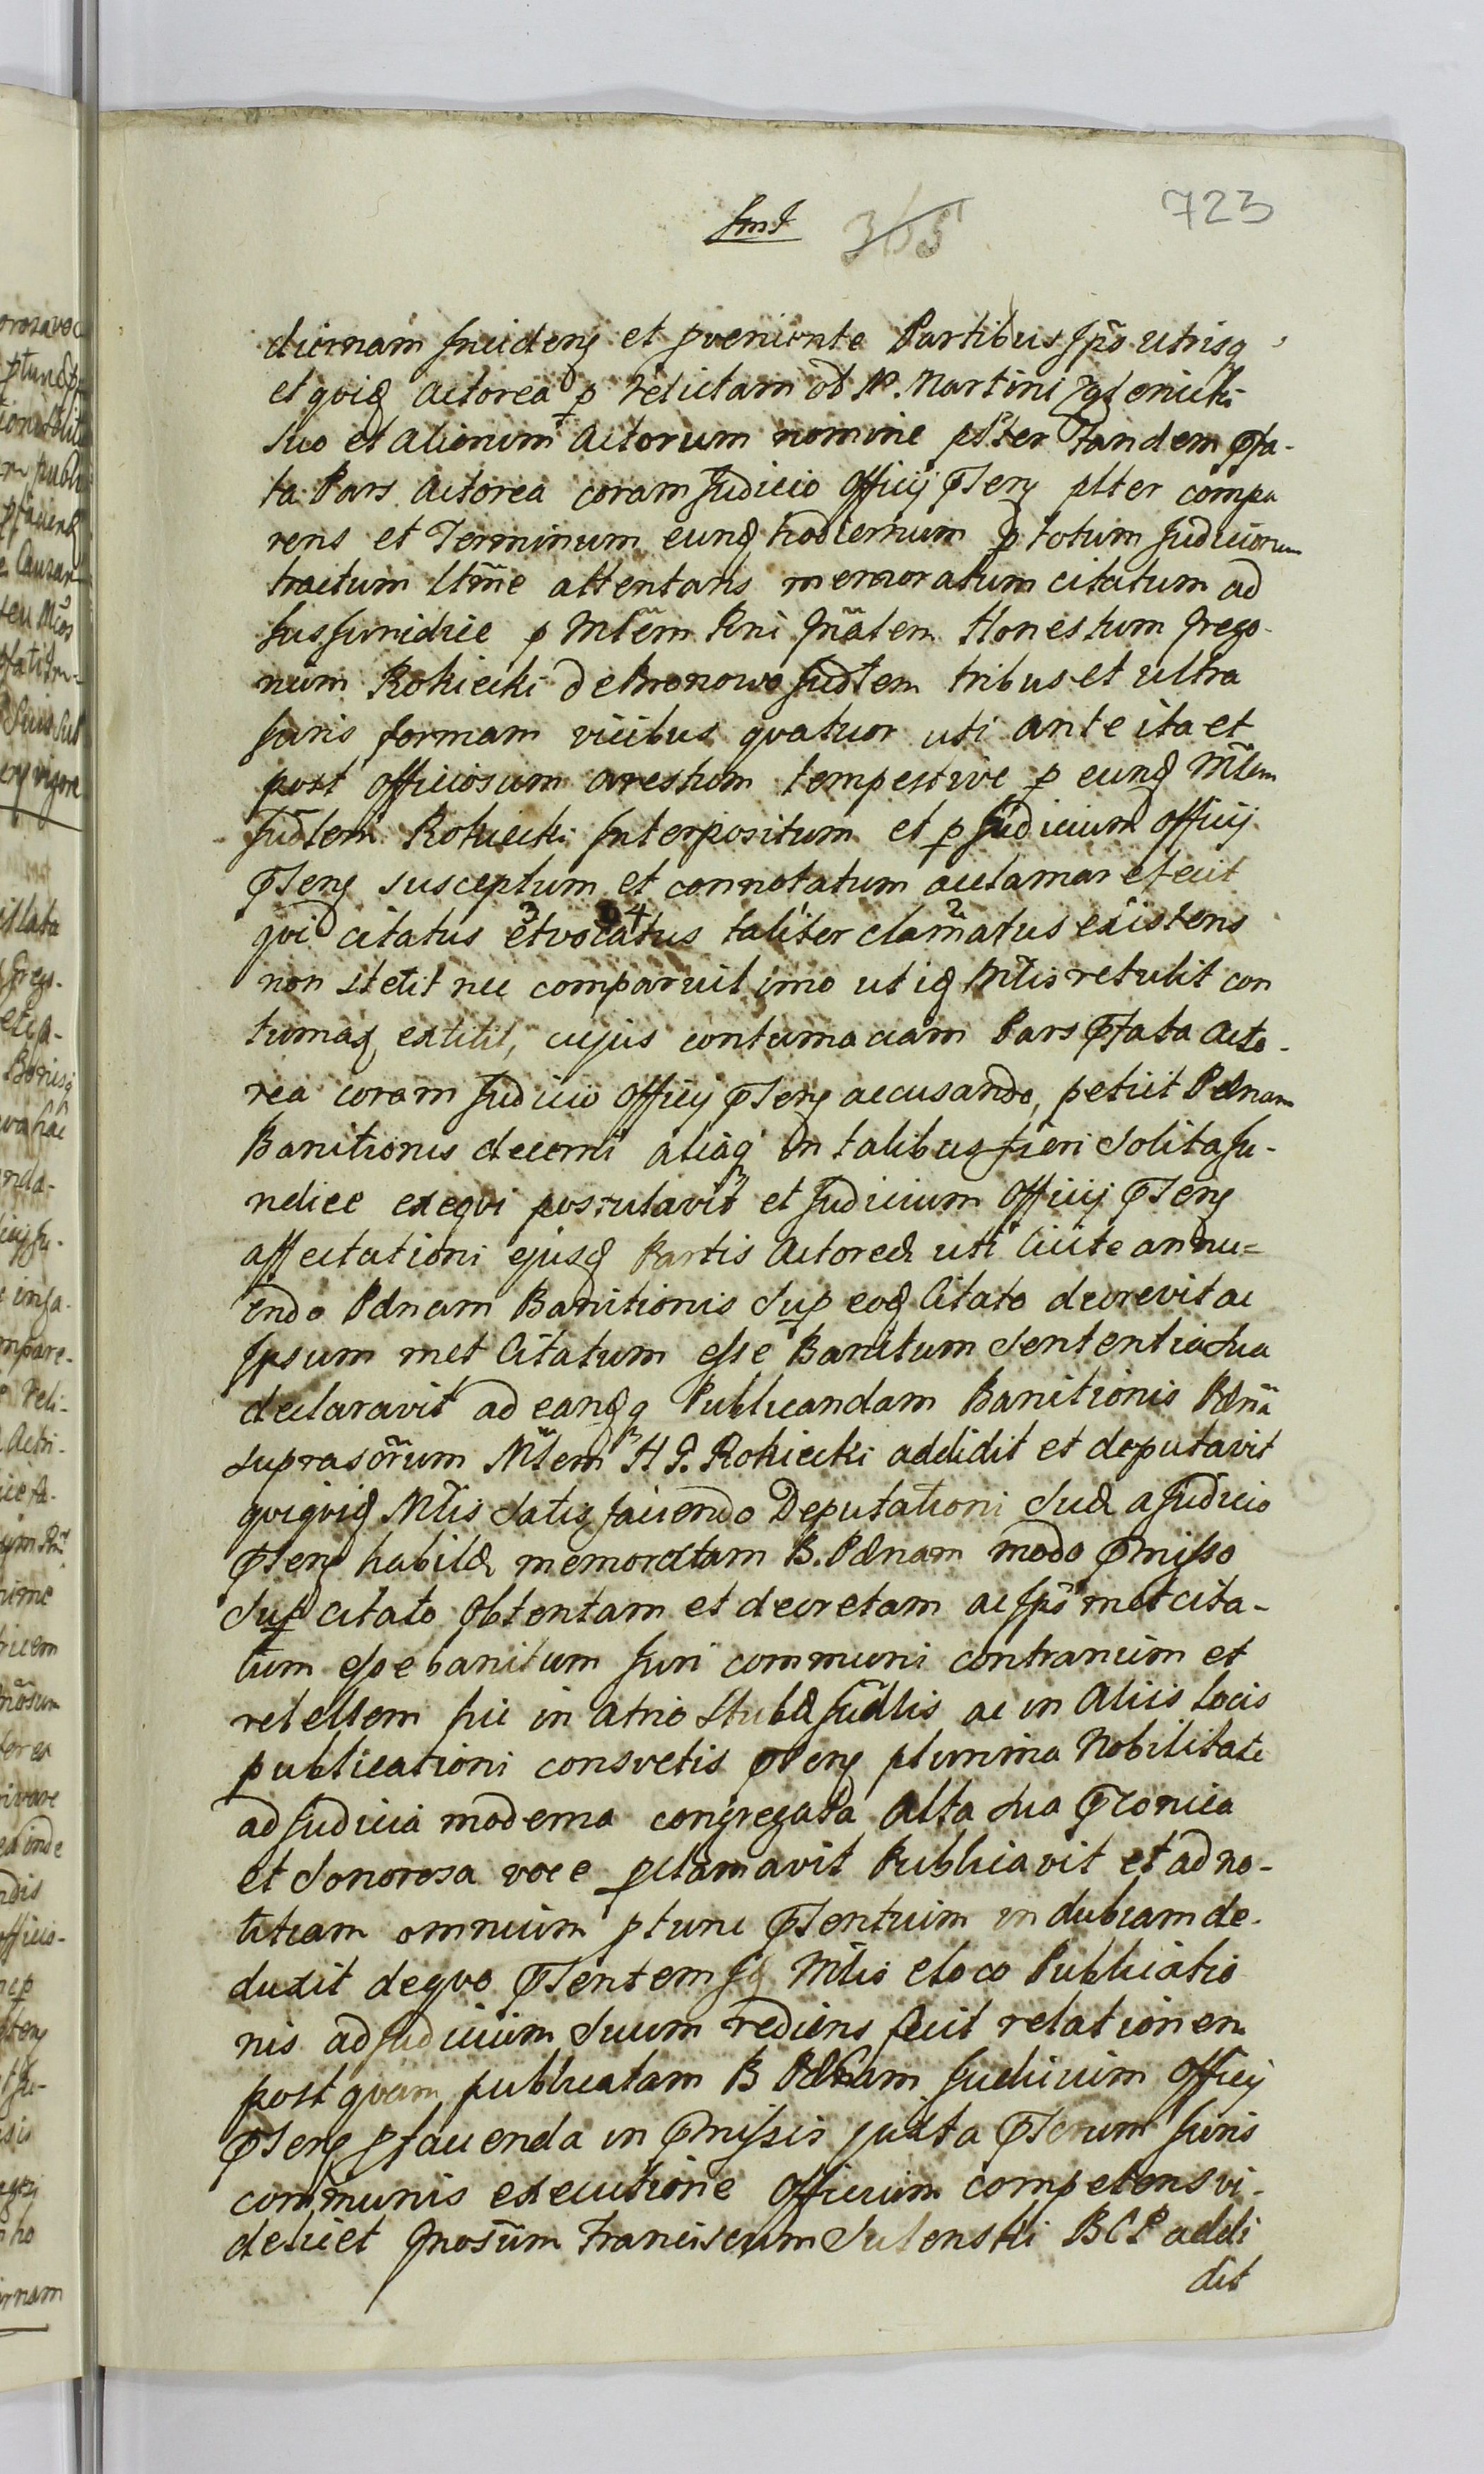 723
365
diernam Incidens et pveniente Partibus Ipõ utrisq
et quid Actorea p relictam ob N. Martini
suo et aliorum Actorum nomine plter Tandem Pfa-
ta Pars Actorea coram Judicio Officij Psens plter compa
rens et Terminum eund hodiernum p totum Judiciorum
tractum ltme attentans memoratum citatum ad
Jus Juridice p Mtem Rni Gnalem Honestum Grego-
rium Rokicki de Bronowo Judtem tribus et ultra
Juris formam vicibus quatuor uti ante ita et
post officiosum arestum tempestive p eund Mtem
Judtem Rokicki Interpositum et p Judicium Officij
Psens susceptum et connotatum acclamari fecit
qui citatus 3 et vocatus 4 taliter clamatus 2 existens
non stetit nec comparuit imo ut id Mtis retulit con
tumax extitit, cujus contumaciam Pars Pfata Acto-
rea coram Judicio Officij Psens accusando, petiit Pænam
Banitionis decerni aliaq in talibus fieri solita Ju-
ridice exequi postulavit et Judicium Officij Psens
affectationi ejusd Partis Actoreæ uti licite annu=
endo Pænam Banitionis Sup eod Citato decrevit ac
Ipsum met Citatum esse Banitum Sententia Sua
declaravit ad eandq Publicandam Banitionis Pænã
suprascrum Mtem H G. Rokicki addidit et deputavit
quiquid Mtis Satis faciendo Deputationi Suæ a Judicio
Psens habitæ memoratam B. Pænam modo Pmisso
Sup citato Obtentam et decretam ac Ipõ met cita-
tum esse banitum Juri communi contrarium et
rebellem hic in atrio Stubæ Judtlis ac in Aliis Locis
publicationi consvetis Psens plurima Nobilitate
ad Judicia moderna congregata Alta Sua Pconica
et Sonorosa voce pclamavit Publicavit et ad no-
titiam omnium ptunc Psentium indubiam de-
duxit de quo Psentem Id Mtis e loco Publicatio
nis ad Judicium Suum rediens fecit relationem
post quam publicatam B Pænam Judicium Officij
Psens p facienda in Pmissis juxta Pscrum Juris
communis executione Officium competens vi-
delicet Gnosum Franciscum Sulenski BCP addi
dit